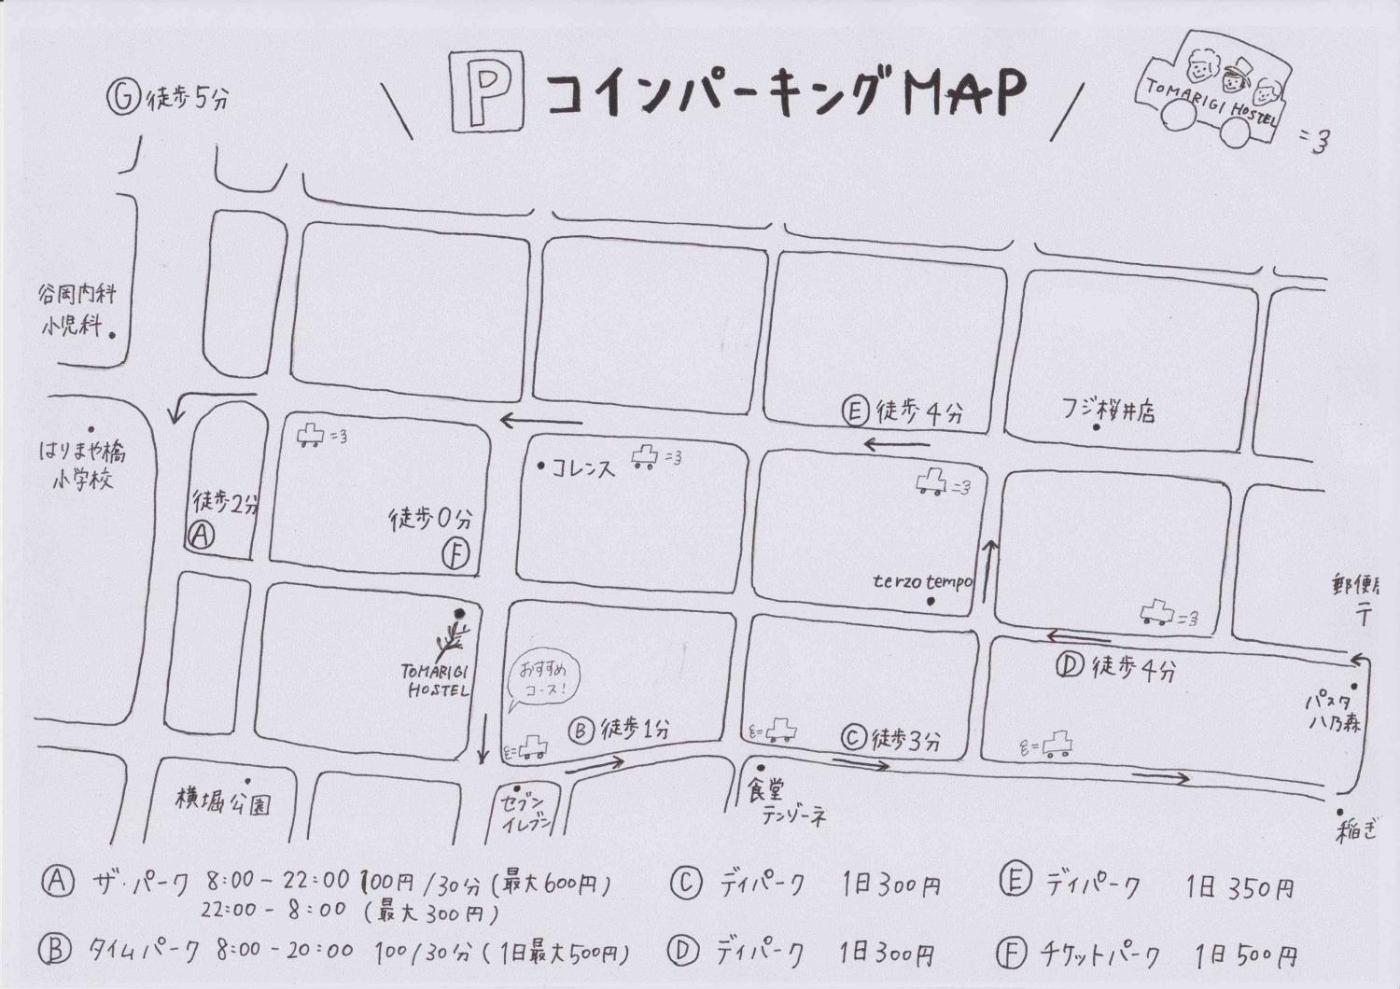 P コインパーキングMAP
TOMARIGI HOSTEL
G 徒歩5分
谷岡内科
小児科
E 徒歩4分
フジ桜井店
はりまや橋
小学校
コレンス
徒歩2分
A
徒歩0分
F
terzo tempo
郵便局
〒
TOMARIGI
HOSTEL
おすすめ
コース!
D 徒歩4分
パスタ
八乃森
B 徒歩1分
C 徒歩3分
横堀公園
セブン
イレブン
食堂
テンゾーネ
稲ぎ
A ザ・パーク 8:00-22:00 100円/30分(最大600円)
22:00-8:00 (最大300円)
B タイムパーク 8:00-20:00 100/30分(1日最大500円)
C デイパーク 1日300円
D デイパーク 1日300円
E デイパーク 1日350円
F チケットパーク 1日500円